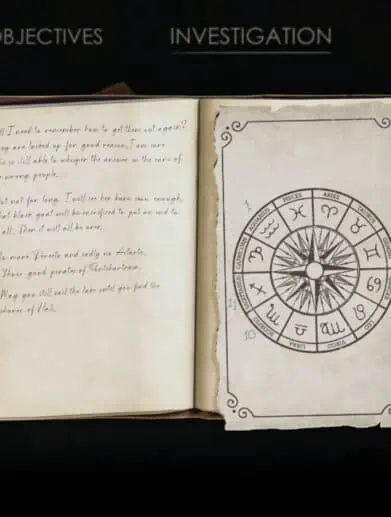 OBJECTIVES
INVESTIGATION
I need to remember how to get them out again?
are locked up for good reason, I am sure
still able to whisper the answer in the ears of
wrong people.
not for long. I will see her burn soon enough,
that black goat will be sacrificed to put an end to
all. Then it will all be over.
more and sadly no
Those good pirates of
May you still sail the lake until you find the
of Hali.
PISCES
ARIES
AQUARIUS
TAURUS
CAPRICORN
GEMINI
SAGITTARIUS
CANCER
SCORPIO
LEO
LIBRA
VIRGO
1
10